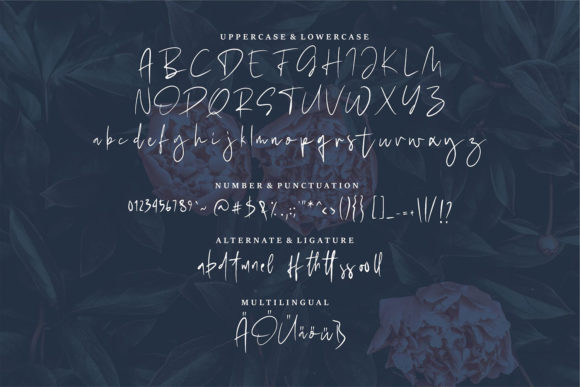 UPPERCASE & LOWERCASE
ABCDEFGHIJKLM
NOPQRSTUVWXYZ
abcdefghijklmnopqrstuvwxyz
NUMBER & PUNCTUATION
0123456789`~ @#$&%.,:;'"*^<>(){}[]_-=+\|/!?
ALTERNATE & LIGATURE
abdtmnel ff th tt ss oo ll
MULTILINGUAL
ÄÖÜäöüß